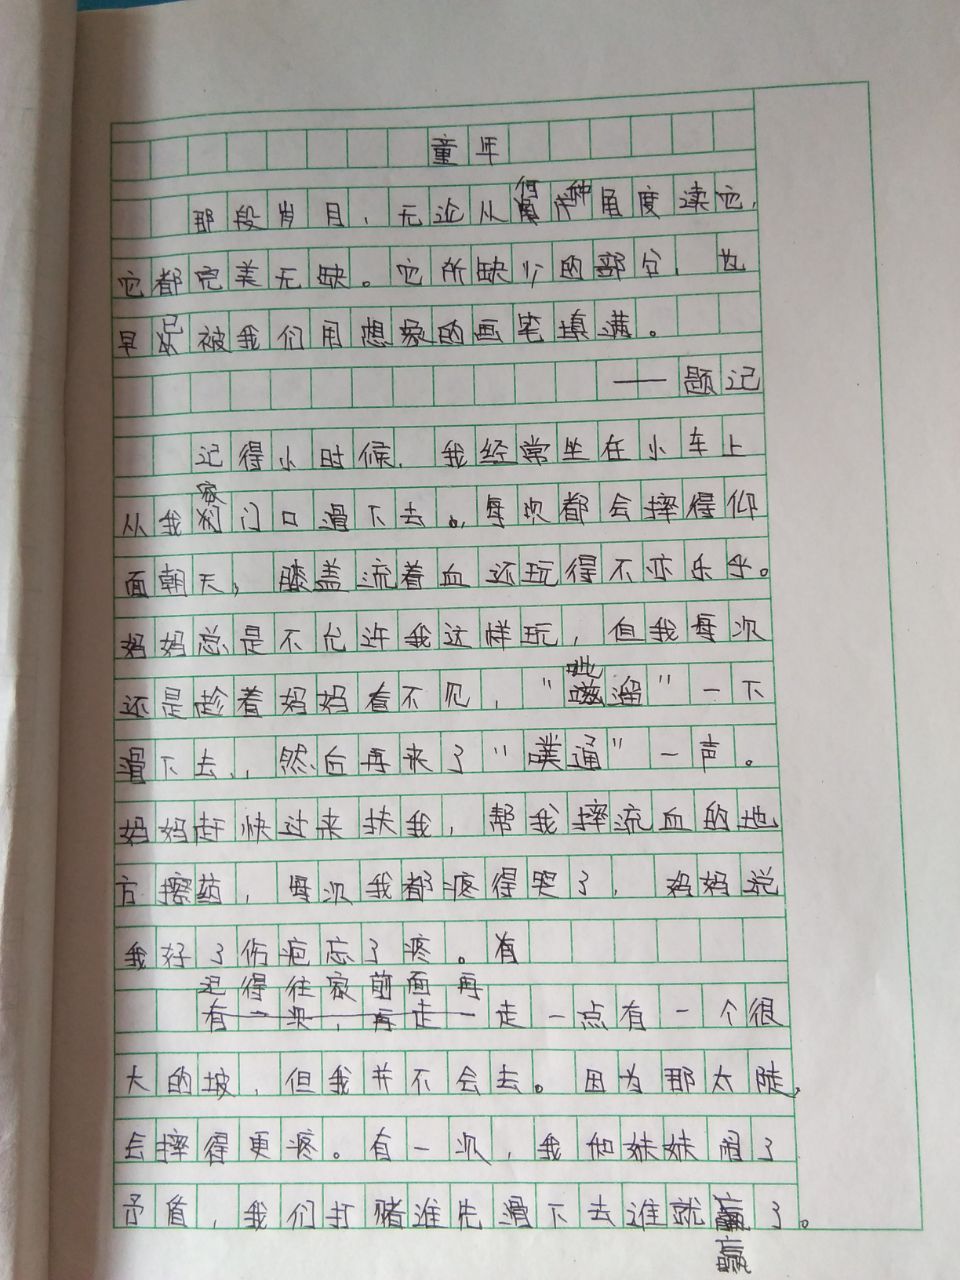 童年
那段岁月，无论从何种角度读它，
它都完美无缺。它所缺少的部分，也
早已被我们用想象的画笔填满。
——题记
记得小时候，我经常坐在小车上
从我家门口滑下去。每次都会摔得仰
面朝天，膝盖流着血还玩得不亦乐乎。
妈妈总是不允许我这样玩，但我每次
还是趁着妈妈看不见，“呲遛”一下
滑下去，然后再来了“噗通”一声。
妈妈赶快过来扶我，帮我摔流血的地
方擦药，每次我都疼得哭了，妈妈说
我好了伤疤忘了疼。有
记得往家前面再
走一点有一个很
大的坡，但我并不会去。因为那太陡，
会摔得更疼。有一次，我他妹妹闹了
矛盾，我们打赌谁先滑下去谁就赢了。